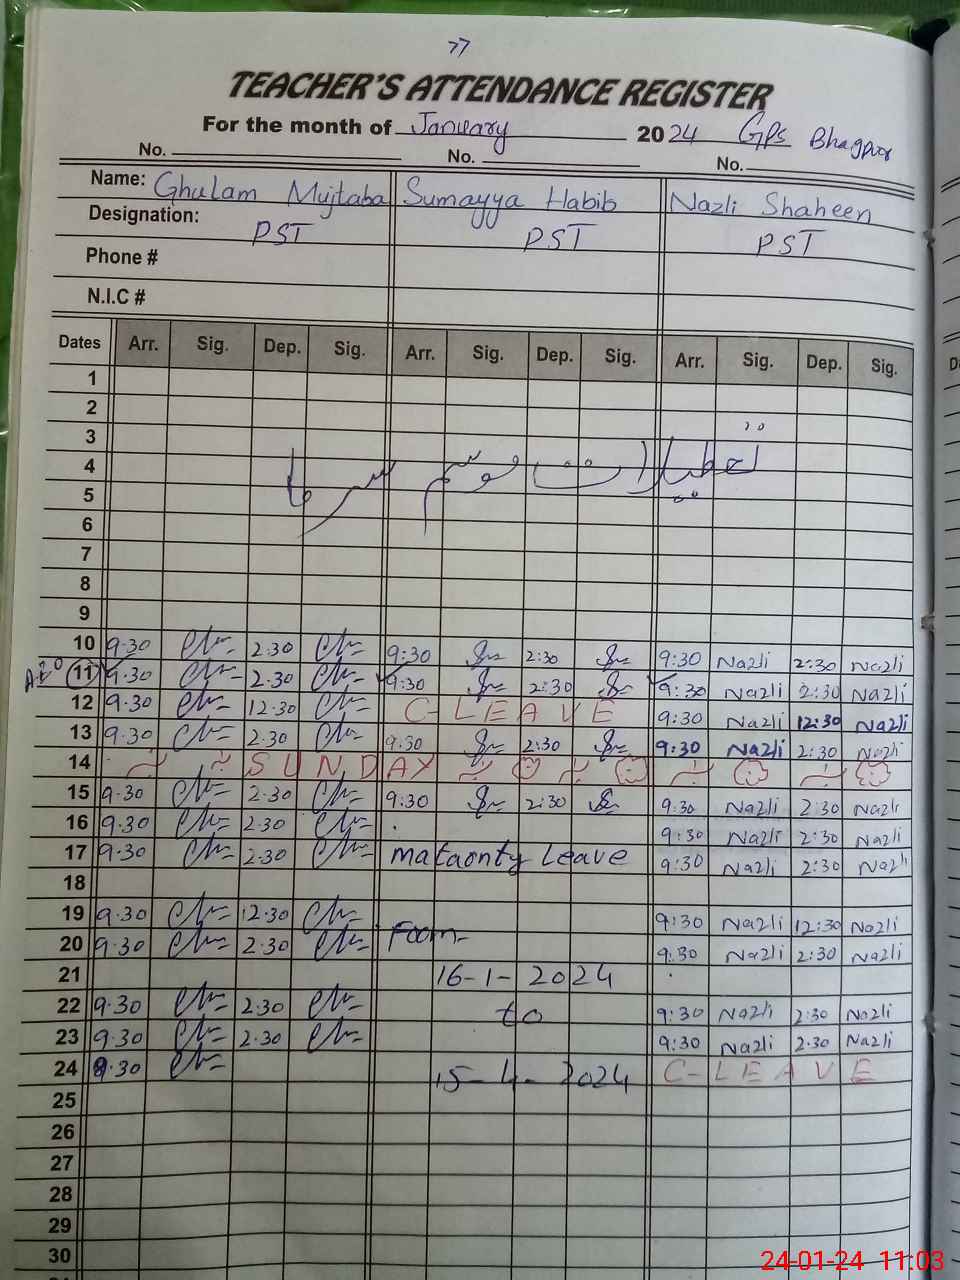 77
TEACHER'S ATTENDANCE REGISTER
For the month of January 2024 GPS Bhagpur
No. No. No.
Name: Ghulam Mujtaba Sumayya Habib Nazli Shaheen
Designation: PST PST PST
Phone #
N.I.C #
Dates Arr. Sig. Dep. Sig. Arr. Sig. Dep. Sig. Arr. Sig. Dep. Sig.
1
2
3
4 تعطیلات موسم سرما
5
6
7
8
9
10 9.30 2.30 9:30 2:30 9:30 Nazli 2:30 Nazli
11 9.30 2.30 9:30 2:30 9:30 Nazli 2:30 Nazli
12 9.30 12.30 C-LEAVE 9:30 Nazli 12:30 Nazli
13 9.30 2.30 9:30 2:30 9:30 Nazli 2:30 Nazli
14 SUNDAY
15 9.30 2.30 9:30 2:30 9:30 Nazli 2:30 Nazli
16 9.30 2.30 9:30 Nazli 2:30 Nazli
17 9.30 2.30 mataonty Leave 9:30 Nazli 2:30 Nazli
18
19 9.30 12.30 9:30 Nazli 12:30 Nazli
20 9.30 2.30 From 9:30 Nazli 2:30 Nazli
21 16-1-2024
22 9.30 2.30 to 9:30 Nazli 2:30 Nazli
23 9.30 2.30 9:30 Nazli 2.30 Nazli
24 8.30 15-4-2024 C-LEAVE
25
26
27
28
29
30
24-01-24 11:03